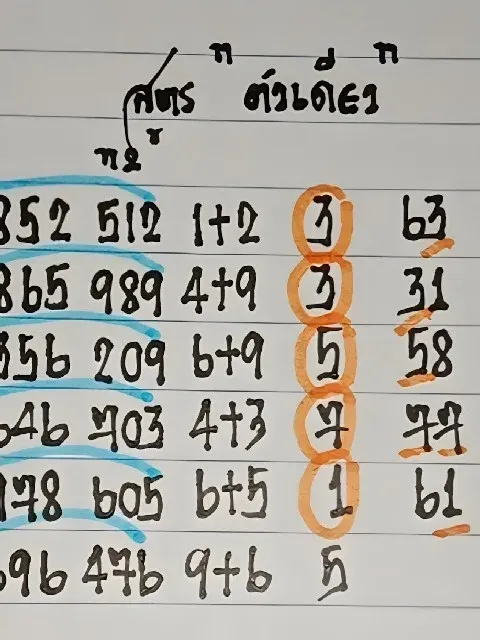 ก ก
สูตร ตัวเดียว
ก2
852 512 1+2 3 63
865 989 4+9 3 31
356 209 6+9 5 58
646 703 4+3 7 77
178 605 6+5 1 61
696 476 9+6 5